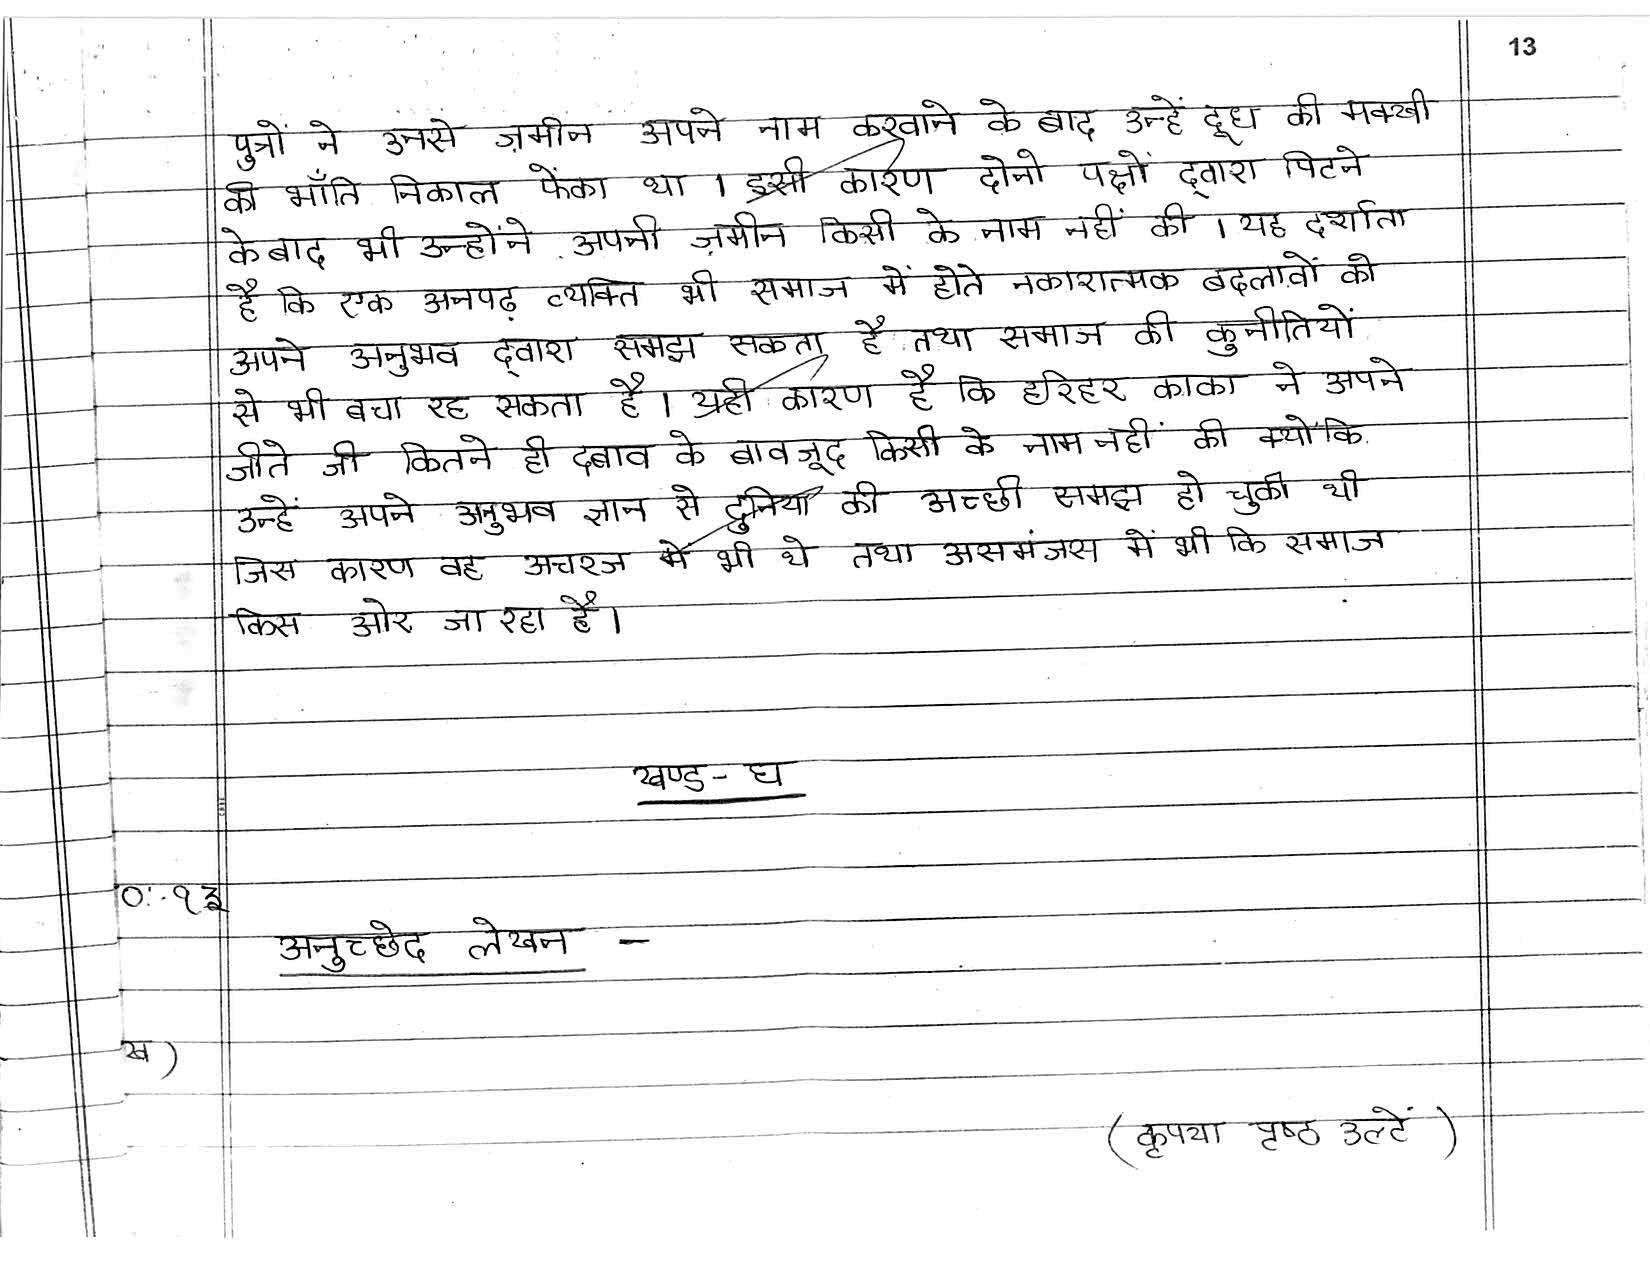 13
पुत्रों ने उनसे ज़मीन अपने नाम करवाने के बाद उन्हें दूध की मक्खी
की भाँति निकाल फेंका था । इसी कारण दोनो पक्षों द्वारा पिटने
के बाद भी उन्होंने अपनी ज़मीन किसी के नाम नहीं की । यह दर्शाता
है कि एक अनपढ़ व्यक्ति भी समाज में होते नकारात्मक बदलावों को
अपने अनुभव द्वारा समझ सकता है तथा समाज की कुनीतियों
से भी बचा रह सकता है । यही कारण है कि हरिहर काका ने अपने
जीते जी कितने ही दबाव के बावजूद किसी के नाम नहीं की क्योंकि
उन्हें अपने अनुभव ज्ञान से दुनिया की अच्छी समझ हो चुकी थी
जिस कारण वह अचरज में भी थे तथा असमंजस में भी कि समाज
किस ओर जा रहा है ।
खण्ड - घ
0:-१३
अनुच्छेद लेखन -
ख)
(कृपया पृष्ठ उल्टें)